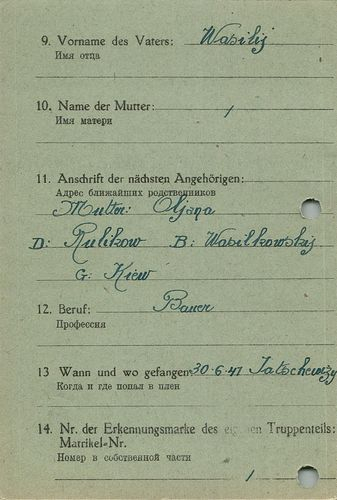 9. Vorname des Vaters: Wasilij
Имя отца
10. Name der Mutter: /
Имя матери
11. Anschrift der nächsten Angehörigen:
Адрес ближайших родственников
Mutter: Oljana
D: Rulikow B: Wasilkowskij
G: Kiew
12. Beruf: Bauer
Профессия
13 Wann und wo gefangen 30.6.41
Когда и где попал в плен
14. Nr. der Erkennungsmarke des eigenen Truppenteils:
Matrikel-Nr.
Номер в собственной части
/